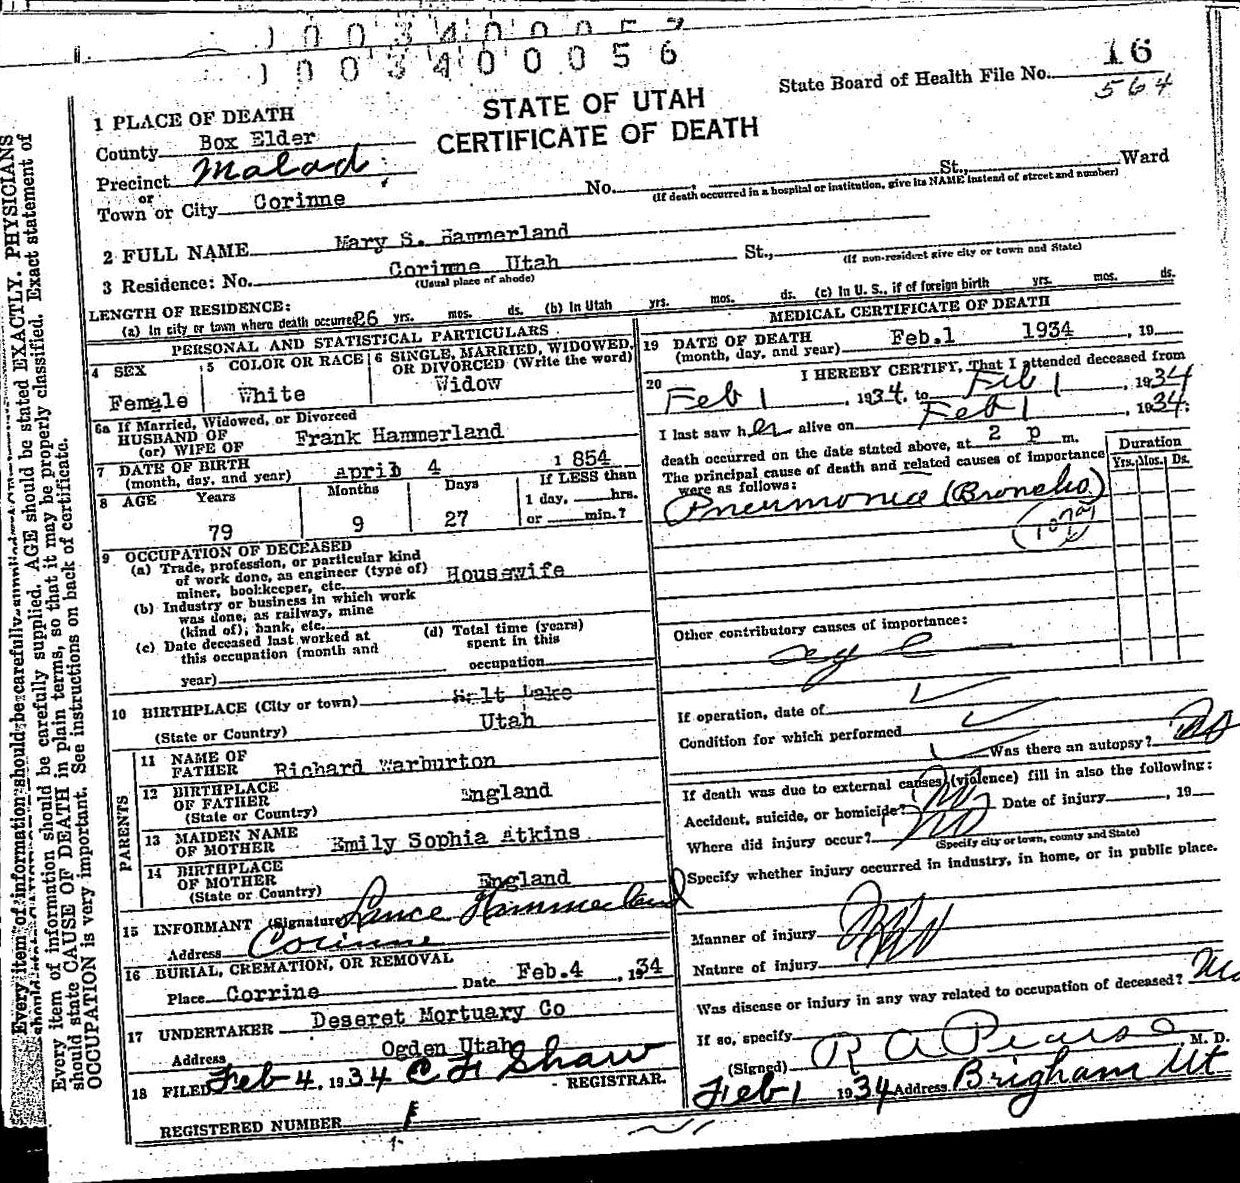 1 0 0 3 4 0 0 0 5 6
State Board of Health File No. 16
564
STATE OF UTAH
CERTIFICATE OF DEATH
1 PLACE OF DEATH
County Box Elder
Precinct Malad
or
Town or City Corinne No. St., Ward
(If death occurred in a hospital or institution, give its NAME instead of street and number)
2 FULL NAME Mary S. Hammerland
3 Residence: No. Corinne Utah St.,
(Usual place of abode) (If non-resident give city or town and State)
LENGTH OF RESIDENCE:
(a) In city or town where death occurred 26 yrs. mos. ds. (b) In Utah yrs. mos. ds. (c) In U. S., if of foreign birth yrs. mos. ds.
PERSONAL AND STATISTICAL PARTICULARS
4 SEX
Female
5 COLOR OR RACE
White
6 SINGLE, MARRIED, WIDOWED,
OR DIVORCED (Write the word)
Widow
6a If Married, Widowed, or Divorced
HUSBAND OF
(or) WIFE OF Frank Hammerland
7 DATE OF BIRTH
(month, day, and year) April 4 1854
8 AGE Years Months Days If LESS than
1 day, hrs.
79 9 27 or min.?
9 OCCUPATION OF DECEASED
(a) Trade, profession, or particular kind
of work done, as engineer (type of)
miner, bookkeeper, etc. Housewife
(b) Industry or business in which work
was done, as railway, mine
(kind of), bank, etc.
(c) Date deceased last worked at
this occupation (month and
year)
(d) Total time (years)
spent in this
occupation
10 BIRTHPLACE (City or town) Salt Lake
(State or Country) Utah
PARENTS
11 NAME OF
FATHER Richard Warburton
12 BIRTHPLACE
OF FATHER England
(State or Country)
13 MAIDEN NAME
OF MOTHER Emily Sophia Atkins
14 BIRTHPLACE
OF MOTHER England
(State or Country)
15 INFORMANT (Signature) Lance Hammerland
Address Corinne
16 BURIAL, CREMATION, OR REMOVAL
Place Corrine Date Feb.4 , 1934
17 UNDERTAKER Deseret Mortuary Co
Address Ogden Utah
18 FILED Feb 4, 1934 C F Shaw
REGISTRAR.
REGISTERED NUMBER 1
MEDICAL CERTIFICATE OF DEATH
19 DATE OF DEATH
(month, day, and year) Feb.1 1934 , 19
20 I HEREBY CERTIFY, That I attended deceased from
Feb 1 , 1934, to Feb 1 , 1934
I last saw her alive on Feb 1 , 1934;
death occurred on the date stated above, at 2 p m.
The principal cause of death and related causes of importance
were as follows:
Duration
Yrs. Mos. Ds.
Pneumonia (Broncho)
Other contributory causes of importance:
If operation, date of
Condition for which performed
Was there an autopsy? No
If death was due to external causes (violence) fill in also the following:
Accident, suicide, or homicide? No Date of injury , 19
Where did injury occur? No
(Specify city or town, county and State)
Specify whether injury occurred in industry, in home, or in public place.
Manner of injury
Nature of injury
Was disease or injury in any way related to occupation of deceased? No
If so, specify
(Signed) R A Pearse , M. D.
Feb 1 1934 Address Brigham Ut
Every item of information should be carefully supplied. AGE should be stated EXACTLY. PHYSICIANS
should state CAUSE OF DEATH in plain terms, so that it may be properly classified. Exact statement of
OCCUPATION is very important. See instructions on back of certificate.